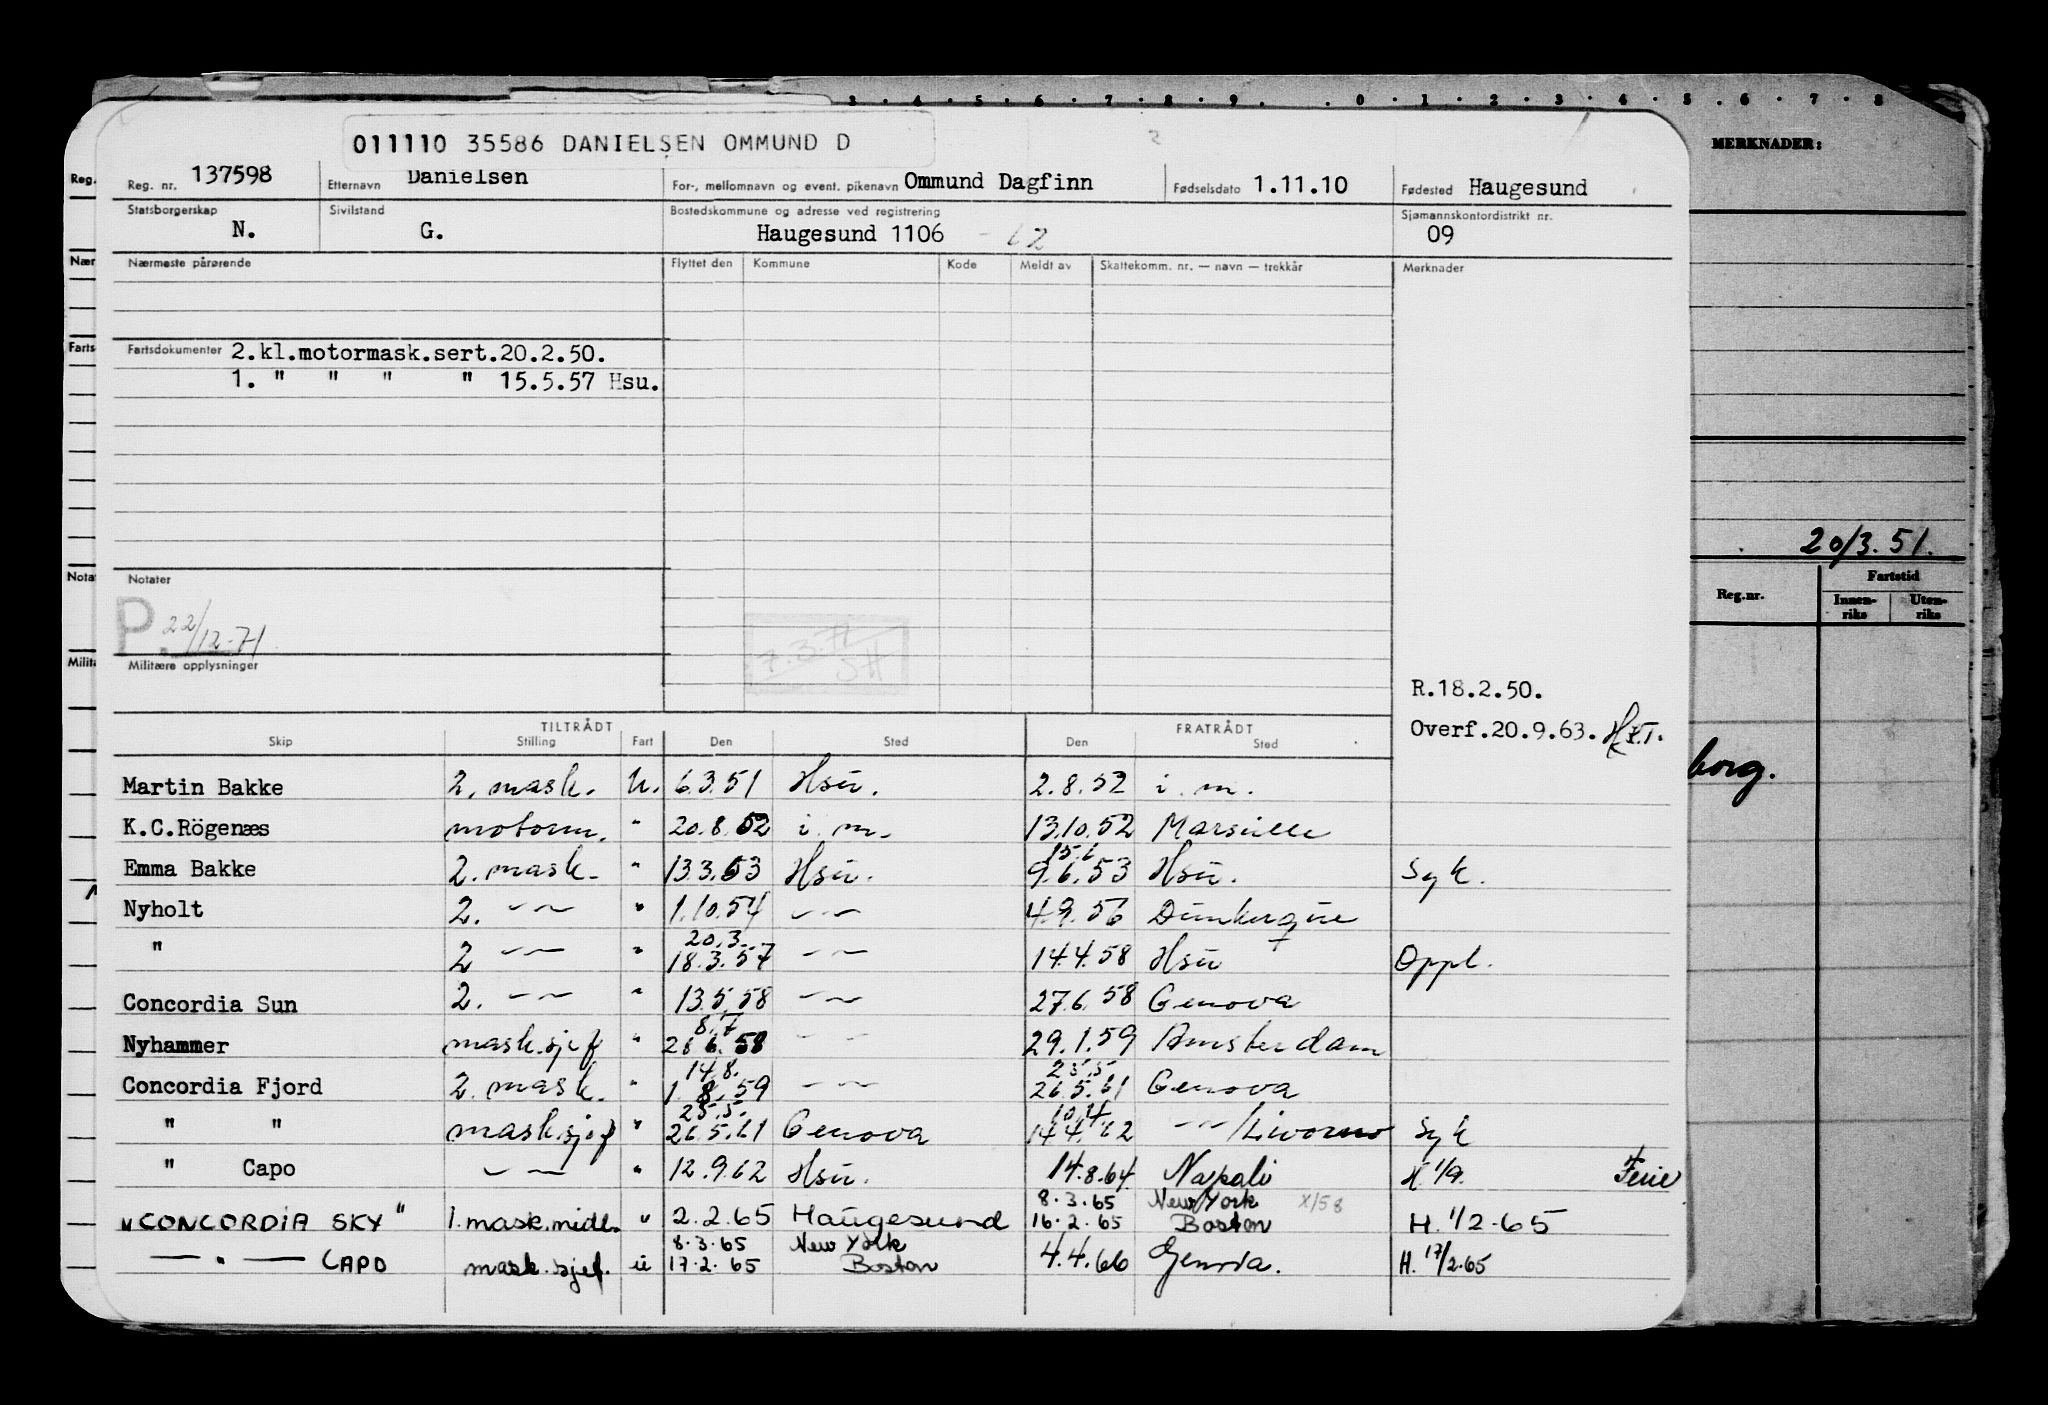 3 . 4 . 5 . 6 . 7 . 8 . 9 . . 0 . 1 . 2 . 3 . 4 . 5 . 6 . 7 . 8
MERKNADER:
011110 35586 DANIELSEN OMMUND D
Reg. nr. 137598 Etternavn Danielsen For-, mellomnavn og event. pikenavn Ommund Dagfinn Fødselsdato 1.11.10 Fødested Haugesund
Statsborgerskap Sivilstand Bostedskommune og adresse ved registrering Sjømannskontordistrikt nr.
N. G. Haugesund 1106 - 62 09
Nærmeste pårørende Flyttet den Kommune Kode Meldt av Skattekomm. nr. — navn — trekkår Merknader
Fartsdokumenter 2.kl.motormask.sert.20.2.50.
1. " " " " 15.5.57 Hsu.
20/3.51.
Notater
P. 22/12-71
7.3.72 SH
Militære opplysninger
Reg.nr. Fartstid
Innen-riks Uten-riks
R.18.2.50.
Overf.20.9.63.
TILTRÅDT FRATRÅDT
Skip Stilling Fart Den Sted Den Sted
borg.
Martin Bakke 2. mask. u. 6.3.51 Hsu. 2.8.52 i. m.
K.C.Rögenæs motorm. " 20.8.52 i. m. 13.10.52 Marseille
15.6
Emma Bakke 2. mask. " 13.3.53 Hsu. 9.6.53 Hsu. Syk.
Nyholt 2. -〃- " 1.10.54 -〃- 4.9.56 Dunkerque
20.3.
" 2 -〃- " 18.3.57 -〃- 14.4.58 Hsu Oppl.
Concordia Sun 2. -〃- " 13.5.58 -〃- 27.6.58 Genova
8.7
Nyhammer mask.sjef " 28.6.58 -〃- 29.1.59 Amsterdam
14.8. 25.5
Concordia Fjord 2. mask. " 1.8.59 -〃- 26.5.61 Genova
25.5. 10.4
" " mask.sjef " 26.5.61 Genova 14.4.62 -〃-/Livorno Syk
" Capo -〃- " 12.9.62 Hsu. 14.8.64 Napoli H. 1/9. Ferie
8.3.65 New York X/58
"CONCORDIA SKY" 1. mask.midl. " 2.2.65 Haugesund 16.2.65 Boston H. 1/2-65
8.3.65 New York
—"— CAPO mask.sjef. u 17.2.65 Boston 4.4.66 Genova. H. 17/2-65